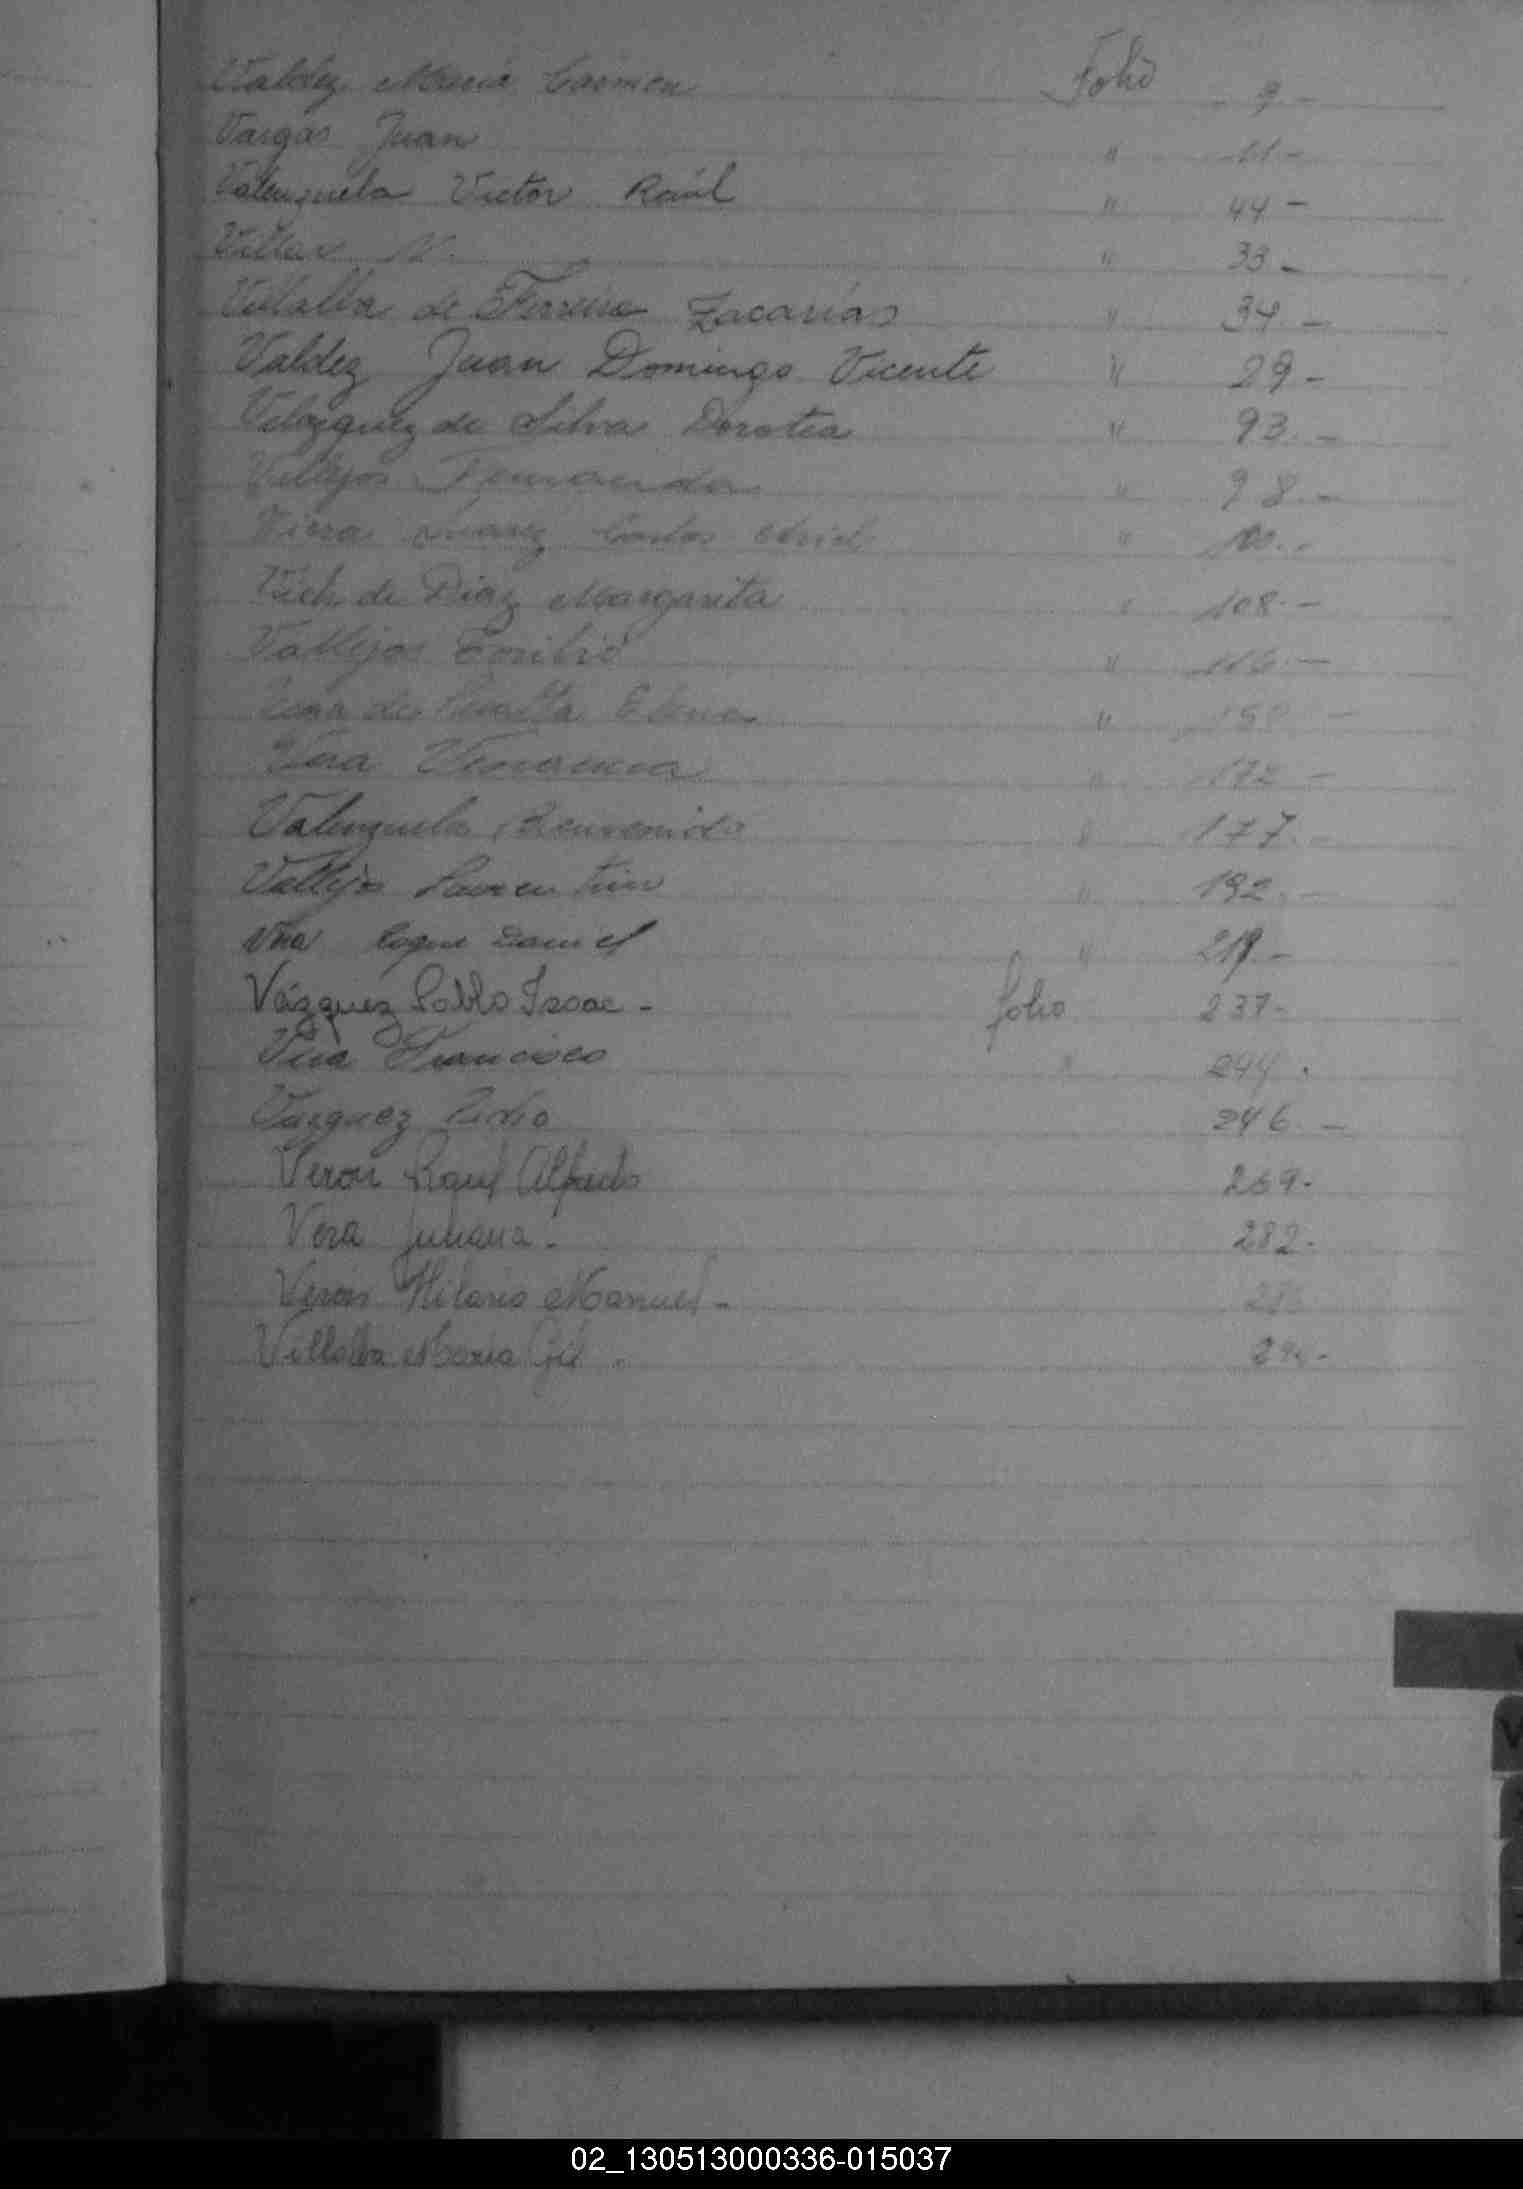 Valdez Maria Carmen Folio 9.-
Vargas Juan " 11-
Valenzuela Victor Raúl " 44-
Villar N. " 33-
Villalba de Ferreira Zacarías " 34.-
Valdez Juan Domingo Vicente " 29-
Velazquez de Silva Dorotea " 93.-
Vallejos Fernanda " 98.-
Viera Suarez Carlos " 100.-
Vich de Diaz Margarita " 108.-
Vallejos " 116.-
de Peralta Elena "
Vera Venancia " 172-
Valenzuela Bienvenido " 177.-
Vallejos Laurentino " 192.-
Vera Roque Daniel " 219.-
Vázquez Pablo Isaac - folio 237-
Vera Francisco " 244.
Vazquez Pedro 246.-
Veron Raul Alfredo 269-
Vera Juliana - 282-
Veron Hilario Manuel -
Villalba Maria Gil
V
02_130513000336-015037